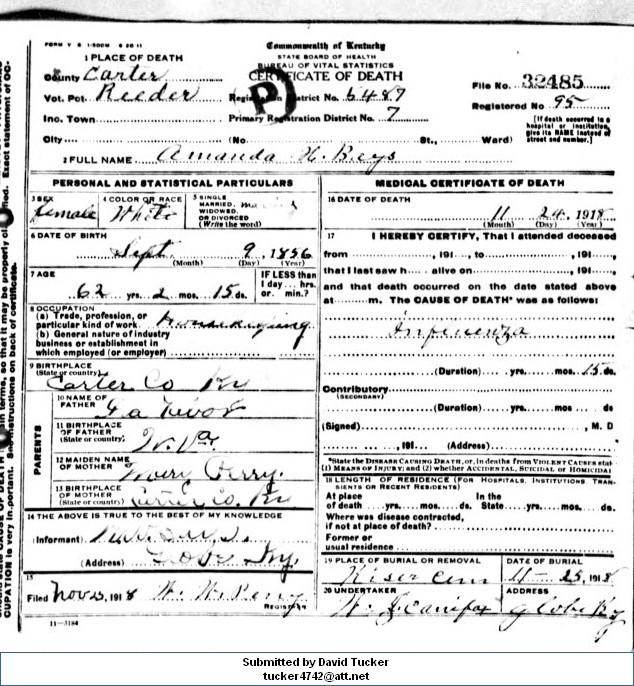 FORM V S 1-500M 6 20 11
Commonwealth of Kentucky
STATE BOARD OF HEALTH
BUREAU OF VITAL STATISTICS
CERTIFICATE OF DEATH
P
1 PLACE OF DEATH
County Carter
Vot. Pct. Reeder Registration District No. 6487
Inc. Town Primary Registration District No. 7
File No. 32485
Registered No 95
[If death occurred in a
hospital or institution,
give its NAME instead of
street and number.]
City (No. St., Ward)
2 FULL NAME Amanda H. Bays
PERSONAL AND STATISTICAL PARTICULARS
3 SEX
female
4 COLOR OR RACE
White
5 SINGLE,
MARRIED,
WIDOWED,
OR DIVORCED
(Write the word)
married
6 DATE OF BIRTH
Sept 9, 1856
(Month) (Day) (Year)
7 AGE
62 yrs. 2 mos. 15 ds.
IF LESS than
1 day ... hrs.
or. min.?
8 OCCUPATION
(a) Trade, profession, or
particular kind of work Housekeeping
(b) General nature of industry
business or establishment in
which employed (or employer)
9 BIRTHPLACE
(State or country)
Carter Co Ky
PARENTS
10 NAME OF
FATHER
11 BIRTHPLACE
OF FATHER
(State or country)
W. Va.
12 MAIDEN NAME
OF MOTHER
Perry.
13 BIRTHPLACE
OF MOTHER
(State or country)
Carter Co. Ky
14 THE ABOVE IS TRUE TO THE BEST OF MY KNOWLEDGE
(Informant)
(Address) Globe Ky.
15
Filed Nov 25, 1918 W. W. Perry
REGISTRAR
11-3184
MEDICAL CERTIFICATE OF DEATH
16 DATE OF DEATH
11 24, 1918
(Month) (Day) (Year)
17 I HEREBY CERTIFY, That I attended deceased
from , 191 , to , 191 ,
that I last saw h alive on , 191 ,
and that death occurred on the date stated above
at m. The CAUSE OF DEATH* was as follows:
Influenza
(Duration) yrs. mos. 15 ds.
Contributory
(SECONDARY)
(Duration) yrs. mos ds
(Signed) , M. D
, 191 (Address)
*State the DISEASE CAUSING DEATH, or, in deaths from VIOLENT CAUSES stat
(1) MEANS OF INJURY; and (2) whether ACCIDENTAL, SUICIDAL or HOMICIDAL
18 LENGTH OF RESIDENCE (FOR HOSPITALS, INSTITUTIONS, TRAN-
SIENTS OR RECENT RESIDENTS)
At place In the
of death yrs. mos. ds. State yrs. mos. ds.
Where was disease contracted,
if not at place of death?
Former or
usual residence
19 PLACE OF BURIAL OR REMOVAL
Kiser Cem
DATE OF BURIAL
11 - 25, 1918
20 UNDERTAKER
W. J. Canifax
ADDRESS
Globe Ky
Submitted by David Tucker
tucker4742@att.net